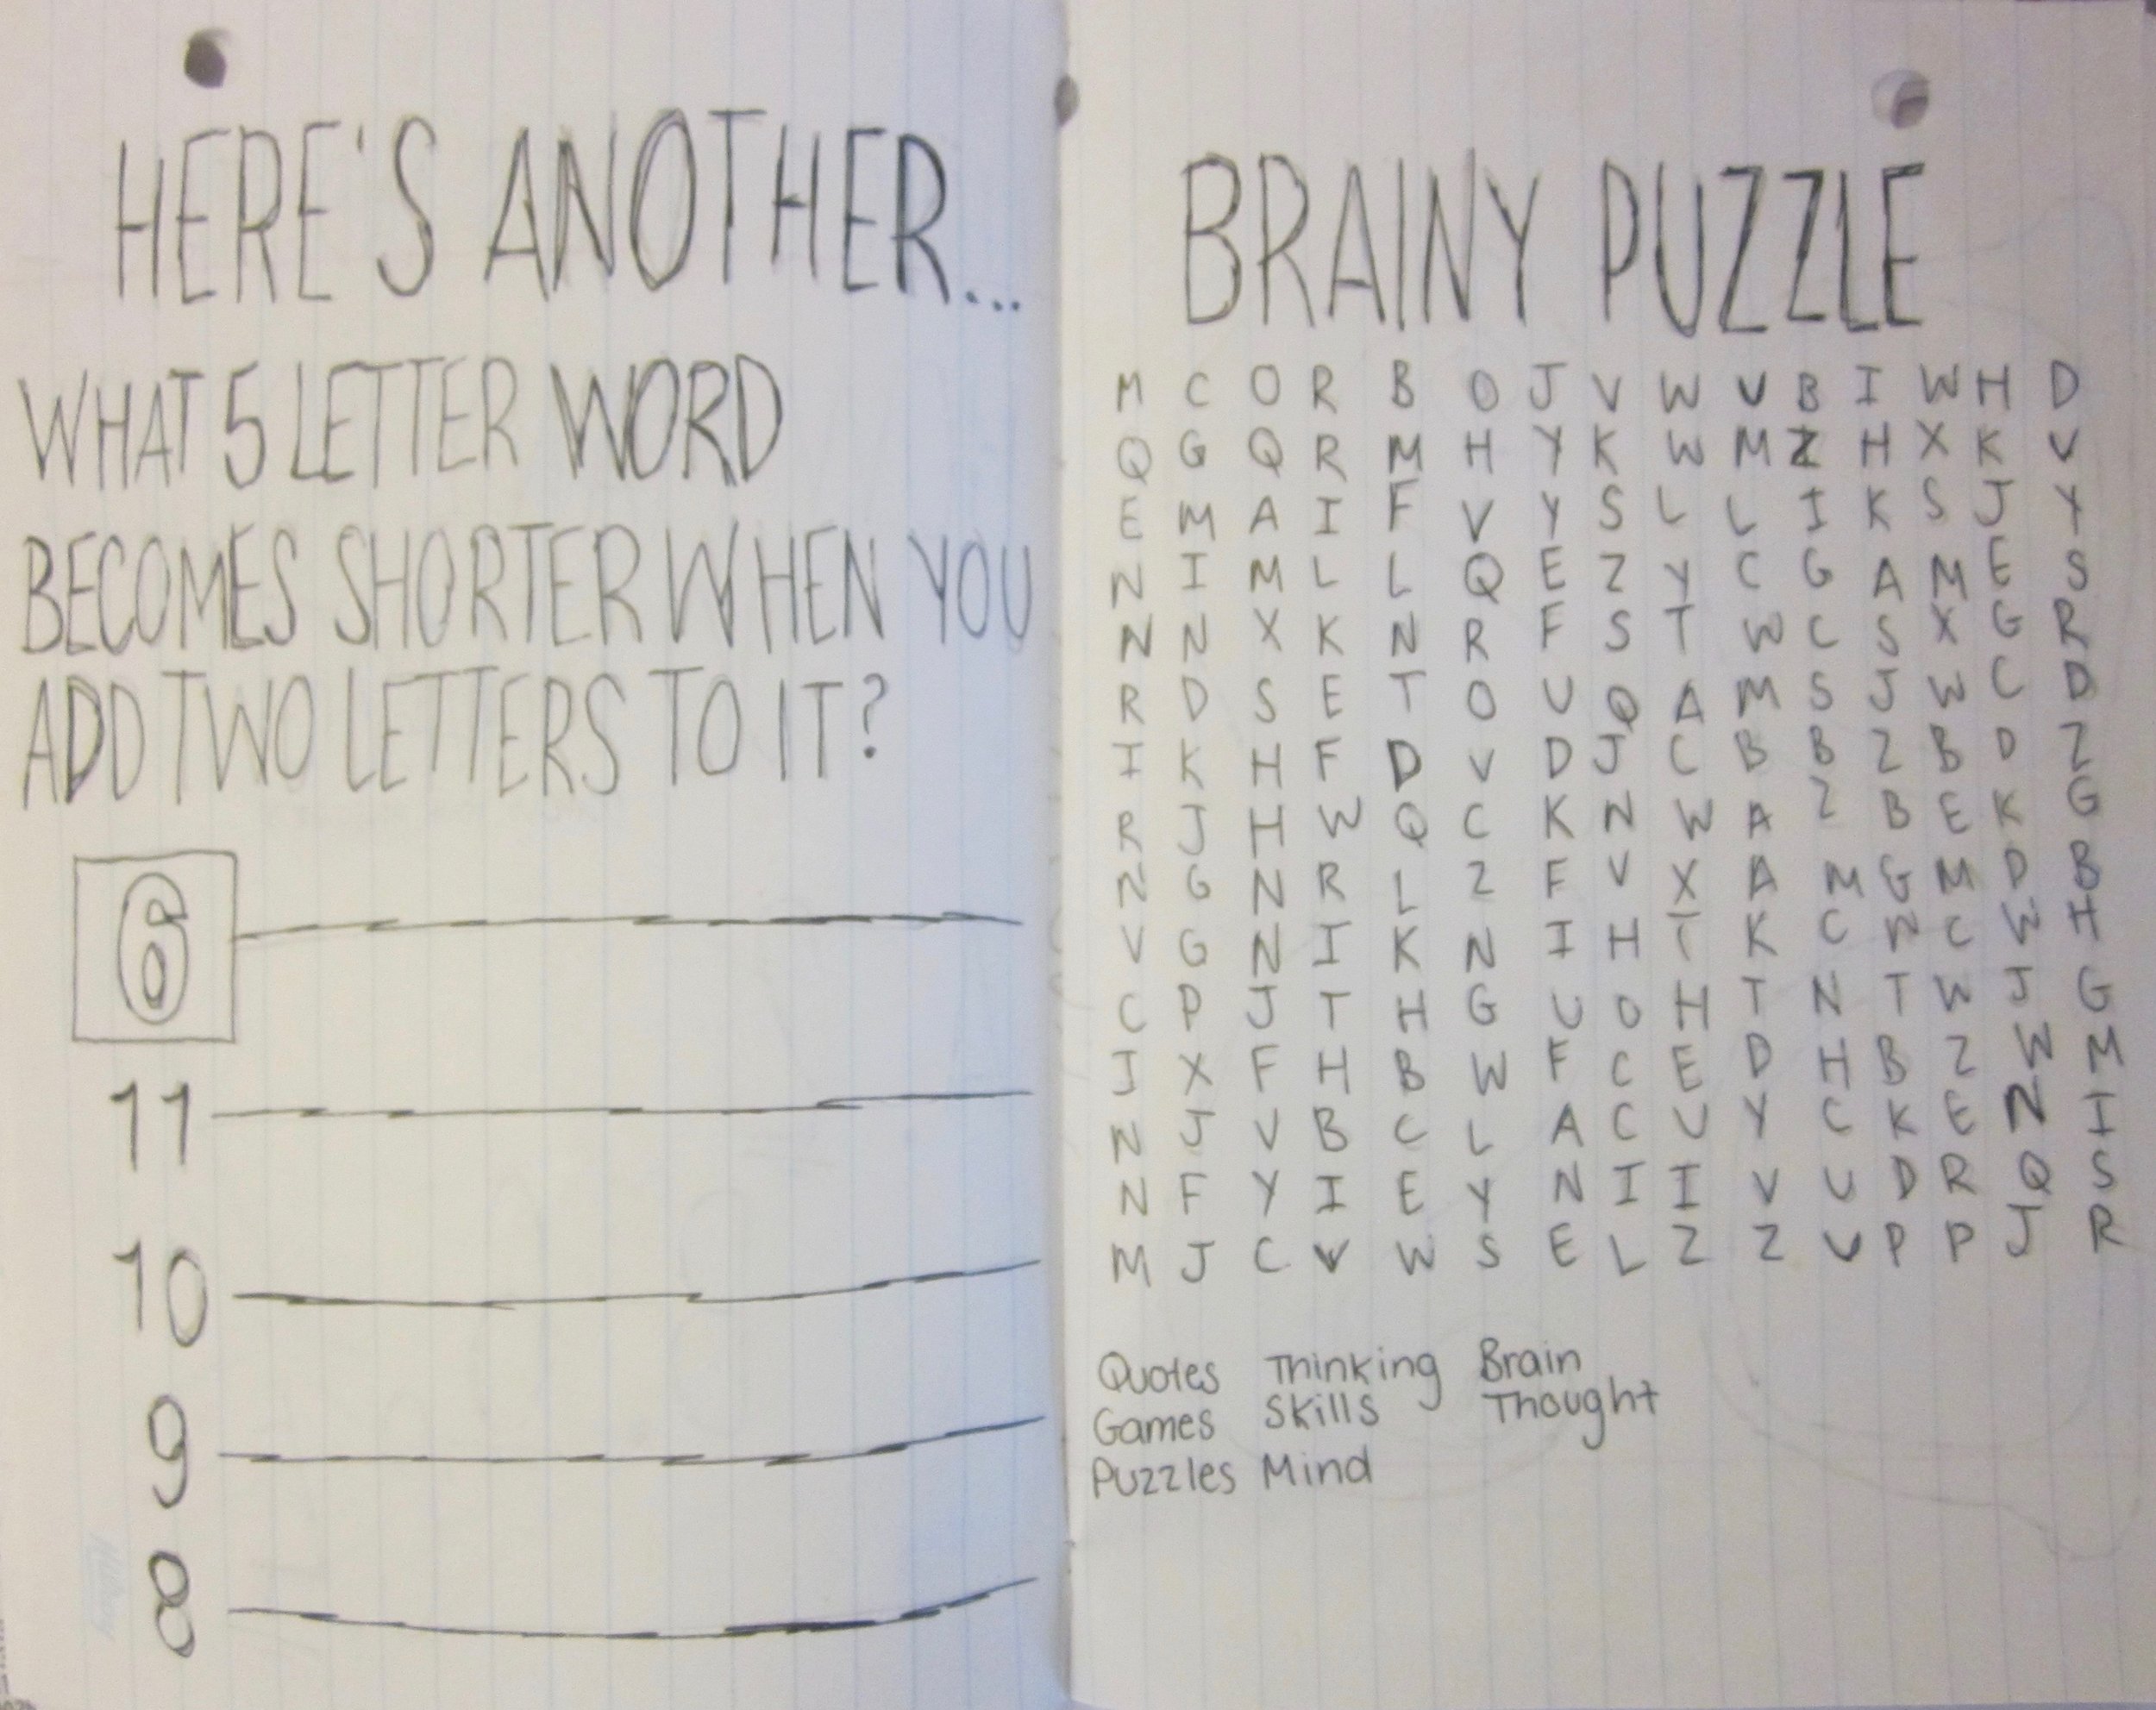 HERE'S ANOTHER...
WHAT 5 LETTER WORD
BECOMES SHORTER WHEN YOU
ADD TWO LETTERS TO IT?
6
11
10
9
8
BRAINY PUZZLE
M C O R B O J V W V B I W H D
Q G Q R M H Y K W M Z H X K V
E M A I F V Y S L L I K S J Y
N I M L L Q E Z Y C G A M E S
N N X K N R F S T W C S X G R
R D S E T O U Q A M S J W C D
I K H F D V D J C B B Z B D Z
R J H W Q C K N W A Z B E K G
N G N R L Z F V X A M G M D B
V G N I K N I H T K C W C W H
C P J T H G U O H T N T W J G
J X F H B W F C E D H B Z W M
N J V B C L A C U Y C K E N I
N F Y I E Y N I I V U D R Q S
M J C V W S E L Z Z U P P J R
Quotes Thinking Brain
Games Skills Thought
Puzzles Mind